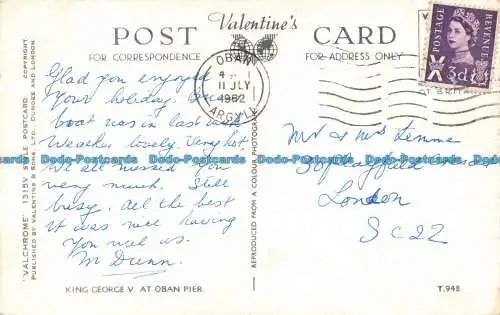 POST Valentine's CARD
FOR CORRESPONDENCE
FOR ADDRESS ONLY
Glad you enjoyed
your holiday. Our
boat was in last week
Weather lovely. Very hot
We all missed you
very much. Still
busy. All the best
It was nice having
you with us.
M Dunn
"VALCHROME" 1315V STYLE POSTCARD. COPYRIGHT.
PUBLISHED BY VALENTINE & SONS, LTD., DUNDEE AND LONDON.
KING GEORGE V. AT OBAN PIER.
REPRODUCED FROM A COLOUR PHOTOGRAPH
OBAN
11 JLY
1962
ARGYLL
POSTAGE
REVENUE
3d
Mr & Mrs
London
SE22
T.948
Dodo-Postcards Dodo-Postcards Dodo-Postcards Dodo-Postcards